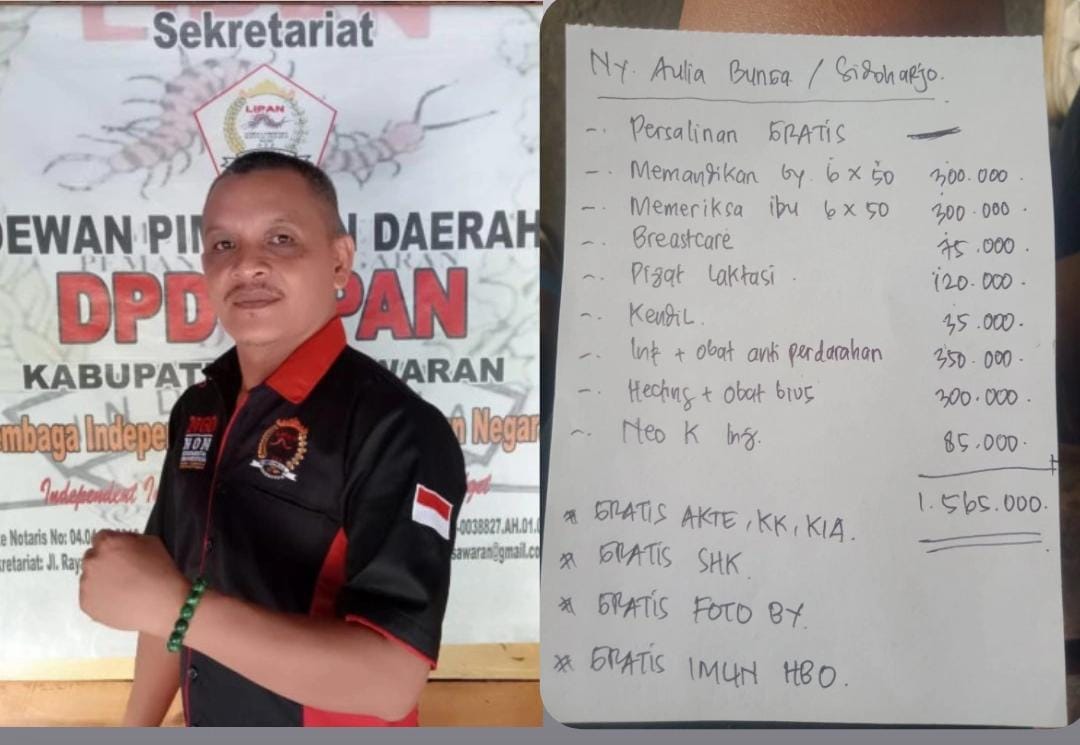 Sekretariat
LIPAN
DEWAN PIM N DAERAH
DPD PAN
KABUPAT WARAN
mbaga Indepe n Negar
Independent
te Notaris No: 04.04
-0038827.AH.01.0
kretariat: Jl. Raya
sawaran@gmail.co
Ny. Aulia Bunga / Sidoharjo.
-. Persalinan GRATIS —
-. Memandikan by. 6 x 50 300.000.
-. Memeriksa ibu 6 x 50 300.000.
-. Breastcare 75.000.
-. Pizat Laktasi. 120.000.
-. Kendil. 35.000.
-. Inf + obat anti perdarahan 350.000.
-. Hecting + obat bius 300.000.
-. Neo K Inj. 85.000.
+
1.565.000.
* GRATIS AKTE, KK, KIA.
* GRATIS SHK.
* GRATIS FOTO BY.
* GRATIS IMUN HBO.